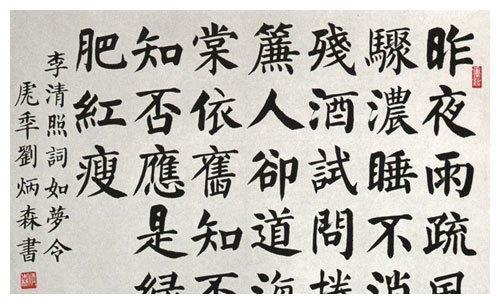 昨夜雨疏風
驟濃睡不消
殘酒試問捲
簾人卻道海
棠依舊知否
知否應是綠
肥紅瘦
李清照詞如夢令
虎秊劉炳森書